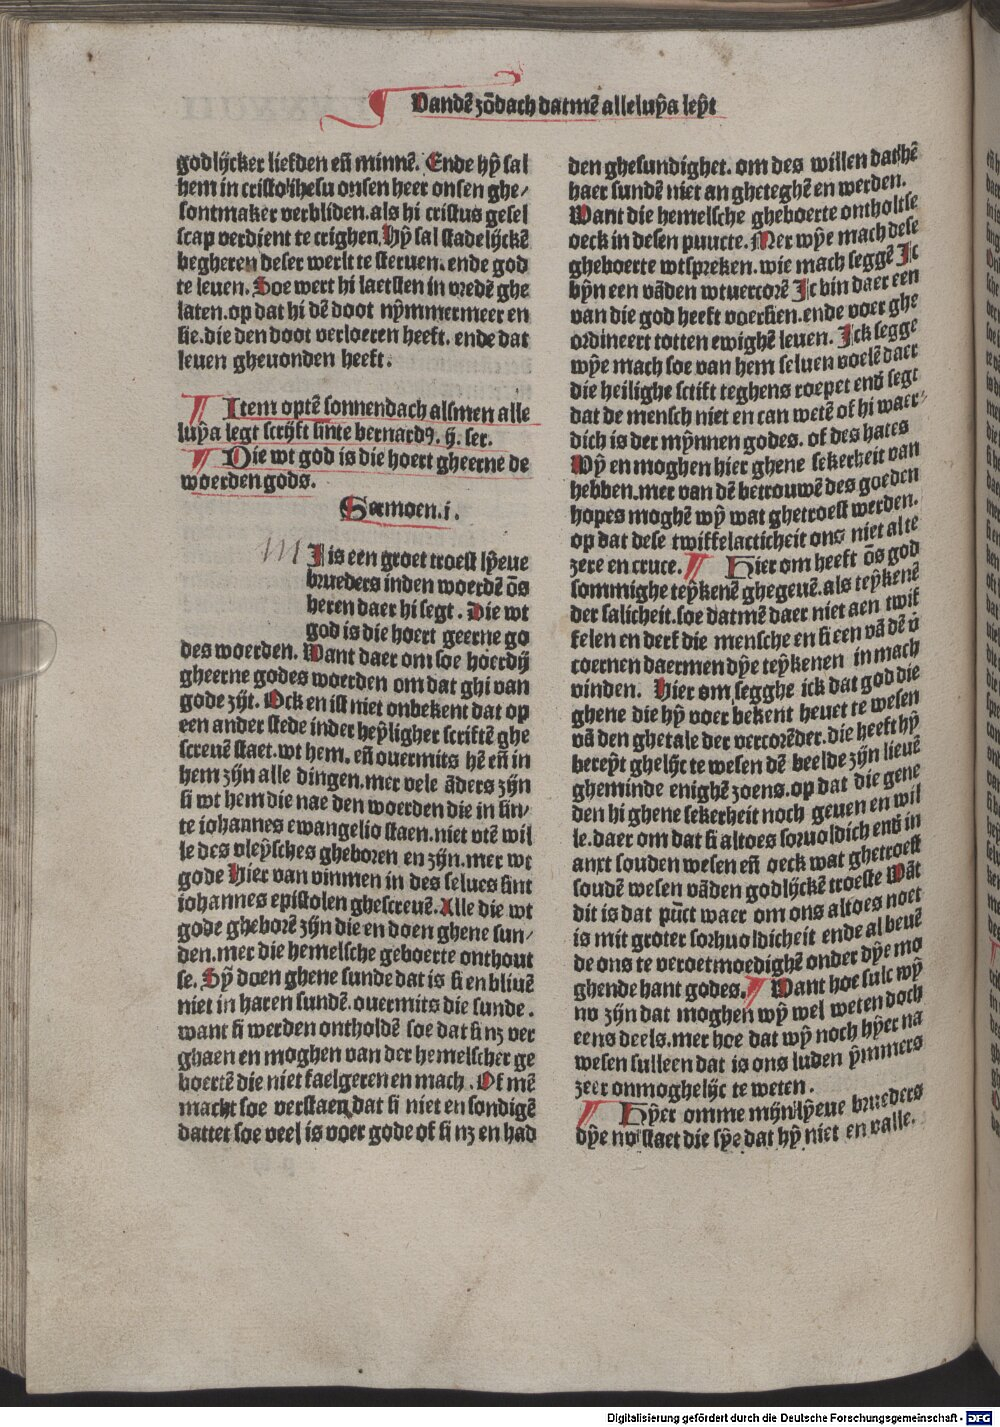 Vandē zōdach datmē alleluẏa leẏt
godlijcker liefden eñ minnē. Ende hẏ sal
hem in cristo ihesu onsen heer onsen ghe/
sontmaker verbliden. als hi cristus gesel
scap verdient te crighen. Hẏ sal stadelijckē
begheren deser werlt te steruen. ende god
te leuen. Soe wert hi laetsten in vredē ghe
laten. op dat hi dē doot nẏmmermeer en
sie. die den doot verloeren heeft. ende dat
leuen gheuonden heeft.
¶ Item optē sonnendach alsmen alle
luẏa legt scrijft sinte bernardꝰ. ij. ser.
¶ Die wt god is die hoert gheerne de
woerden gods.
Sermoen. i.
I is een groet troest lẏeue
brueders inden woerdē ōs
heren daer hi segt. Die wt
god is die hoert geerne go
des woerden. Want daer om soe hoerdij
gheerne godes woerden om dat ghi van
gode zijt. Ock en ist niet onbekent dat op
een ander stede inder heẏligher scriftē ghe
screuē staet. wt hem. eñ ouermits hē eñ in
hem zijn alle dingen. mer vele āders zijn
si wt hem die nae den woerden die in sin/
te iohannes ewangelio staen. niet vtē wil
le des vleẏsches gheboren en zijn. mer wt
gode Hier van vinmen in des selues sint
iohannes epistolen ghescreuē. Alle die wt
gode gheborē zijn die en doen ghene sun/
den. mer die hemelsche geboerte onthout
se. Hẏ doen ghene sunde dat is si en bliuē
niet in haren sundē. ouermits die sunde.
want si werden ontholdē soe dat si nz ver
ghaen en moghen van der hemelscher ge
boertē die niet faelgeren en mach. Of mē
macht soe verstaen dat si niet en sondigē
dattet soe veel is voer gode of si nz en had
den ghesundighet. om des willen dat hē
haer sundē niet an gheteghē en werden.
Want die hemelsche gheboerte ontholtse
oeck in desen puucte. Mer wẏe mach dese
gheboerte wtspreken. wie mach seggē Jc
bẏn een vāden wtuercorē Jc bin daer een
van die god heeft voersien. ende voer ghe
ordineert totten ewighē leuen. Jck segge
wẏe mach soe van hem seluen voelē daer
die heilighe sctift teghens roepet endˀ segt
dat de mensch niet en can wetē of hi waer/
dich is der mẏnnen godes. of des hates
Wẏ en moghen hier ghene sekerheit van
hebben. mer van dē betrouwē des goeden
hopes moghē wẏ wat ghetroest werden.
op dat dese twiffelacticheit ons niet al te
zere en cruce. ¶ Hier om heeft ōs god
sommighe teẏkenē ghegeuē. als teẏkenē
der salicheit. soe datmē daer niet aen twif
felen en derf die mensche en si een vā dē ū
coernen daermen dẏe teẏkenen in mach
vinden. Hier om segghe ick dat god die
ghene die hẏ voer bekent heuet te wesen
vā den ghetale der vercorēder. die heeft hẏ
bereẏt ghelijc te wesen dē beelde zijn lieuē
gheminde enighē zoens. op dat die gene
den hi ghene sekerheit noch geuen en wil
le. daer om dat si altoes soruoldich endˀ in
anxt souden wesen eñ oeck wat ghetroest
soudē wesen vāden godlijckē troeste Wāt
dit is dat pūct waer om ons altoes noet
is mit groter sorhuoldicheit ende al beuē
de ons te veroetmoedighē onder dẏe mo
ghende hant godes. ¶ Want hoe sulc wẏ
nv zijn dat moghen wẏ wel weten doch
eens deels. mer hoe dat wẏ noch hẏer na
wesen sulleen dat is ons luden ẏmmers
zeer onmoghelijc te weten.
¶ Hẏer omme mijn lẏeue brueders
dẏe nv staet die sẏe dat hẏ niet en valle.
Digitalisierung gefördert durch die Deutsche Forschungsgemeinschaft - DFG